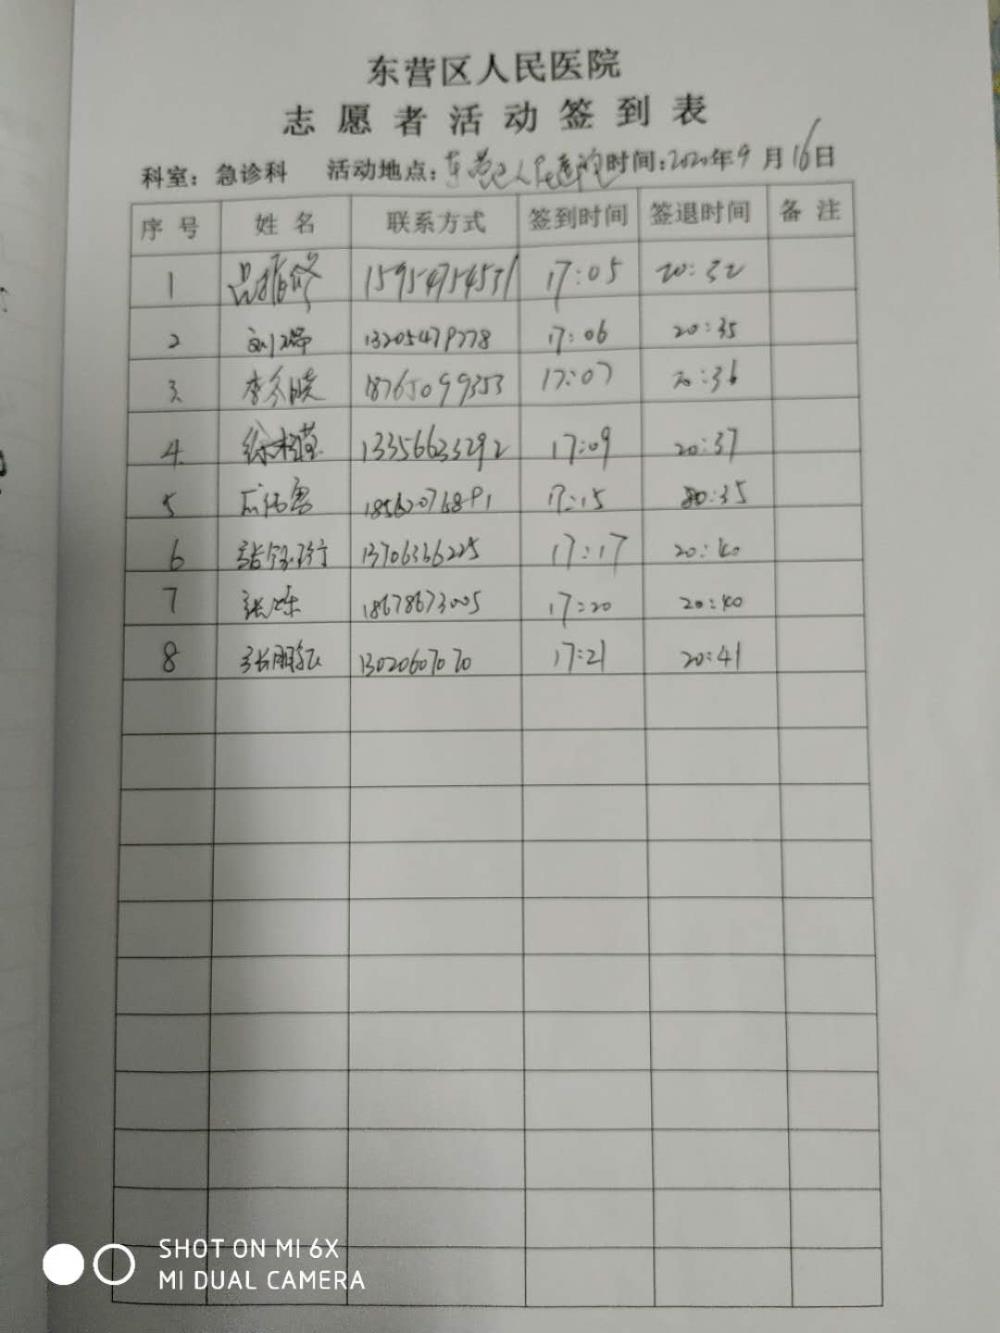 东营区人民医院
志愿者活动签到表
科室：急诊科 活动地点：东营区人民医院 时间：2020年9月16日
序号 姓名 联系方式 签到时间 签退时间 备注
1 15954754531 17:05 20:32
2 刘瑞 13205479278 17:06 20:35
3 李冬晓 18765099353 17:07 20:36
4 13356633292 17:09 20:37
5 17:15 20:35
6 13706366225 17:17 20:40
7 18678673005 17:20 20:40
8 13020607070 17:21 20:41
SHOT ON MI 6X
MI DUAL CAMERA